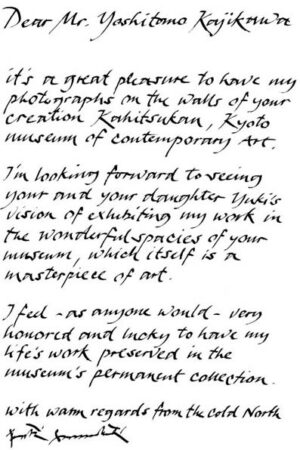 Dear Mr. Yoshitomo Kajikawa
it's a great pleasure to have my
photographs on the walls of your
creation Kahitsukan, Kyoto
museum of contemporary Art.
I'm looking forward to seeing
your and your daughter Yuki's
vision of exhibiting my work in
the wonderful spacies of your
museum, which itself is a
masterpiece of art.
I feel - as anyone would - very
honored and lucky to have my
life's work preserved in the
museum's permanent collection.
with warm regards from the cold North